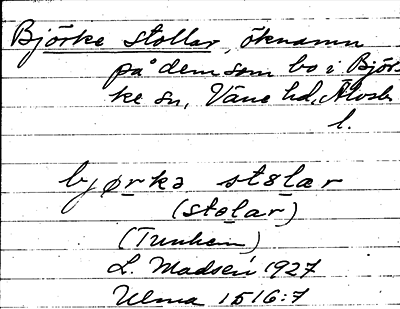 Björke stollar, öknamn
på dem som bo i Björ-
ke sn, Väne hd, Älvsb.
l.
bjørkə stølær
(stolar)
(Trunhem)
L. Madsén 1927
Ulma 1516:7